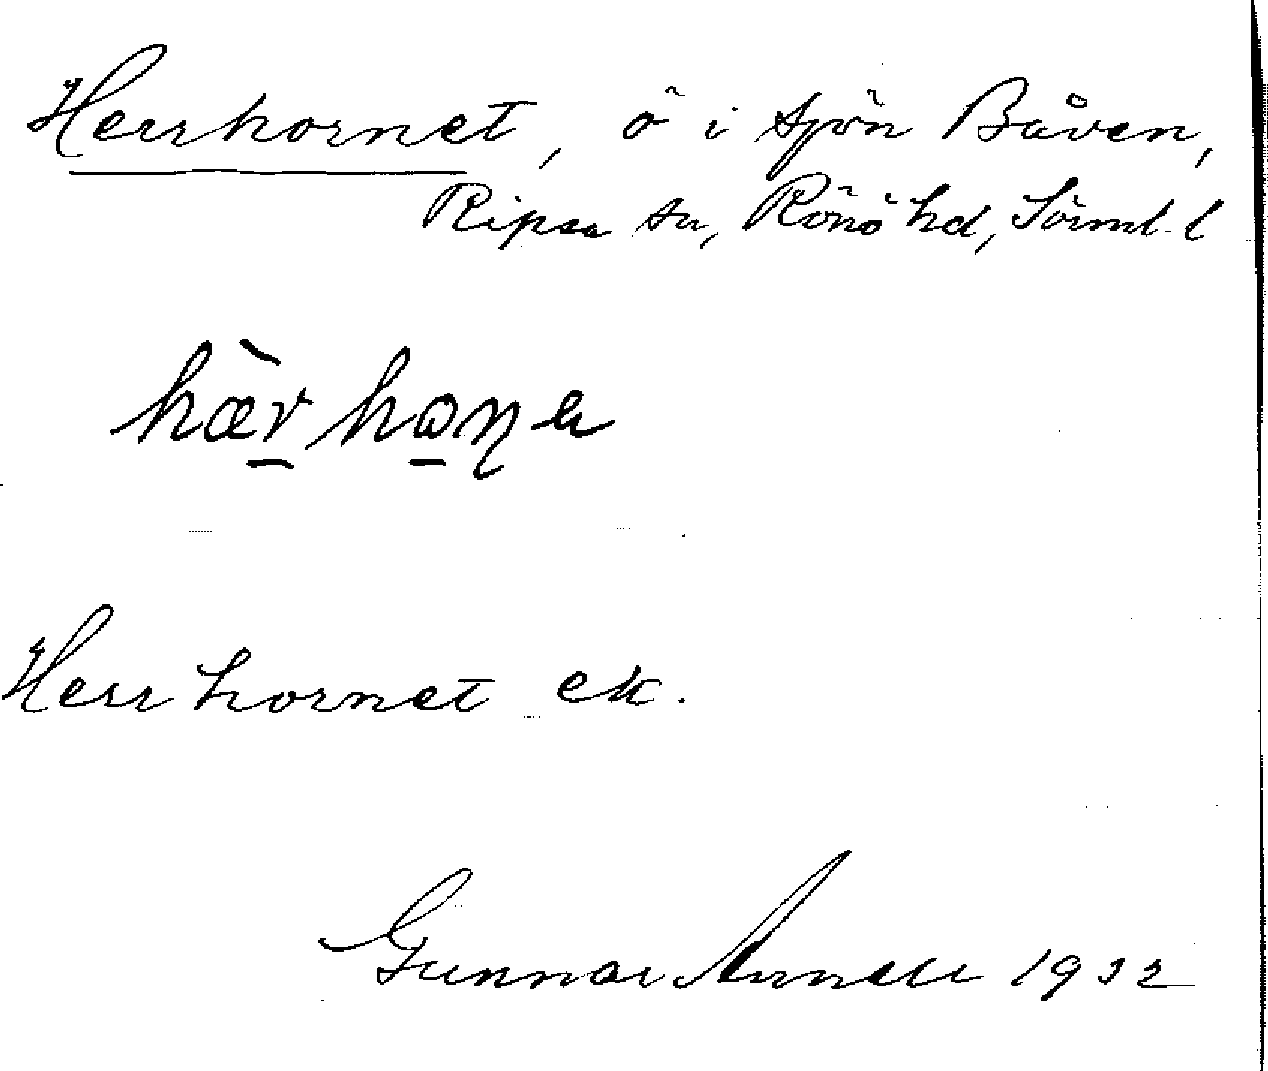 Herrhornet, ö i sjön Båven,
Ripsa sn, Rönö hd, Sörml. l
Herrhornet ek.
Gunnar Arnell 1932